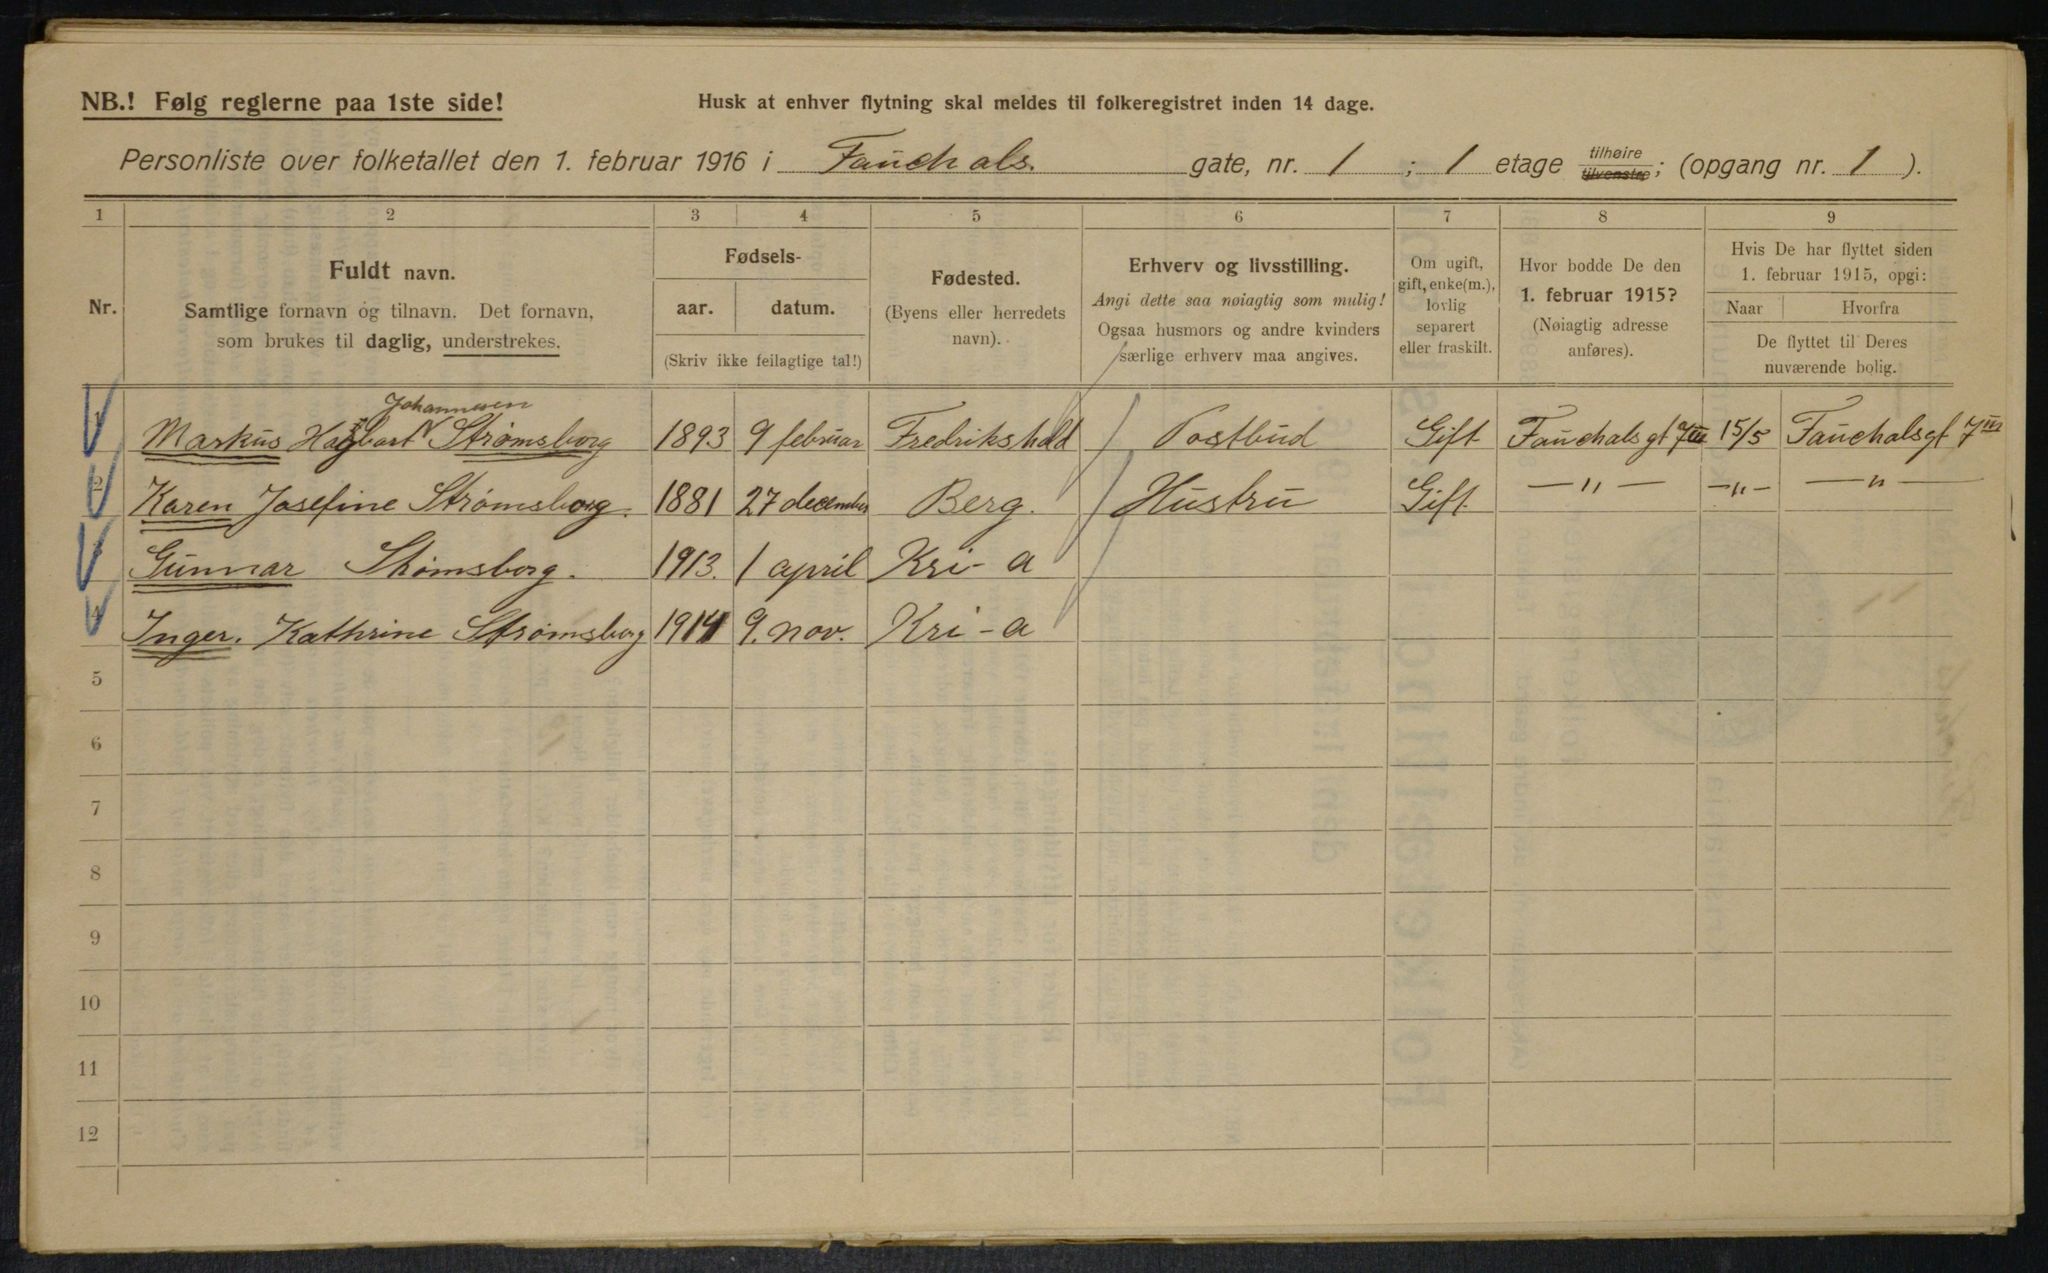 NB.! Følg reglerne paa 1ste side!
Husk at enhver flytning skal meldes til folkeregistret inden 14 dage.
Personliste over folketallet den 1. februar 1916 i Fauchals. gate, nr. 1 ; 1 etage tilhøire tilvenstre; (opgang nr. 1 ).
1 2 3 4 5 6 7 8 9
Nr.
Fuldt navn.
Samtlige fornavn og tilnavn. Det fornavn,
som brukes til daglig, understrekes.
Fødsels-
aar. datum.
(Skriv ikke feilagtige tal!)
Fødested.
(Byens eller herredets
navn).
Erhverv og livsstilling.
Angi dette saa nøiagtig som mulig!
Ogsaa husmors og andre kvinders
særlige erhverv maa angives.
Om ugift,
gift, enke(m.),
lovlig
separert
eller fraskilt.
Hvor bodde De den
1. februar 1915?
(Nøiagtig adresse
anføres).
Hvis De har flyttet siden
1. februar 1915, opgi:
Naar Hvorfra
De flyttet til Deres
nuværende bolig.
Johannesen
1 Markus Hagbart Strømsborg 1893 9 februar Fredrikshald Postbud Gift Fauchalsgt 7III 15/5 Fauchalsgt 7III
2 Karen Josefine Strømsborg. 1881 27 december Berg. Hustru Gift. —"— —"— —"—
3 Gunnar Strømsborg. 1913. 1 april Kri-a
4 Inger. Kathrine Strømsborg 1914 9. nov. Kri-a
5
6
7
8
9
10
11
12